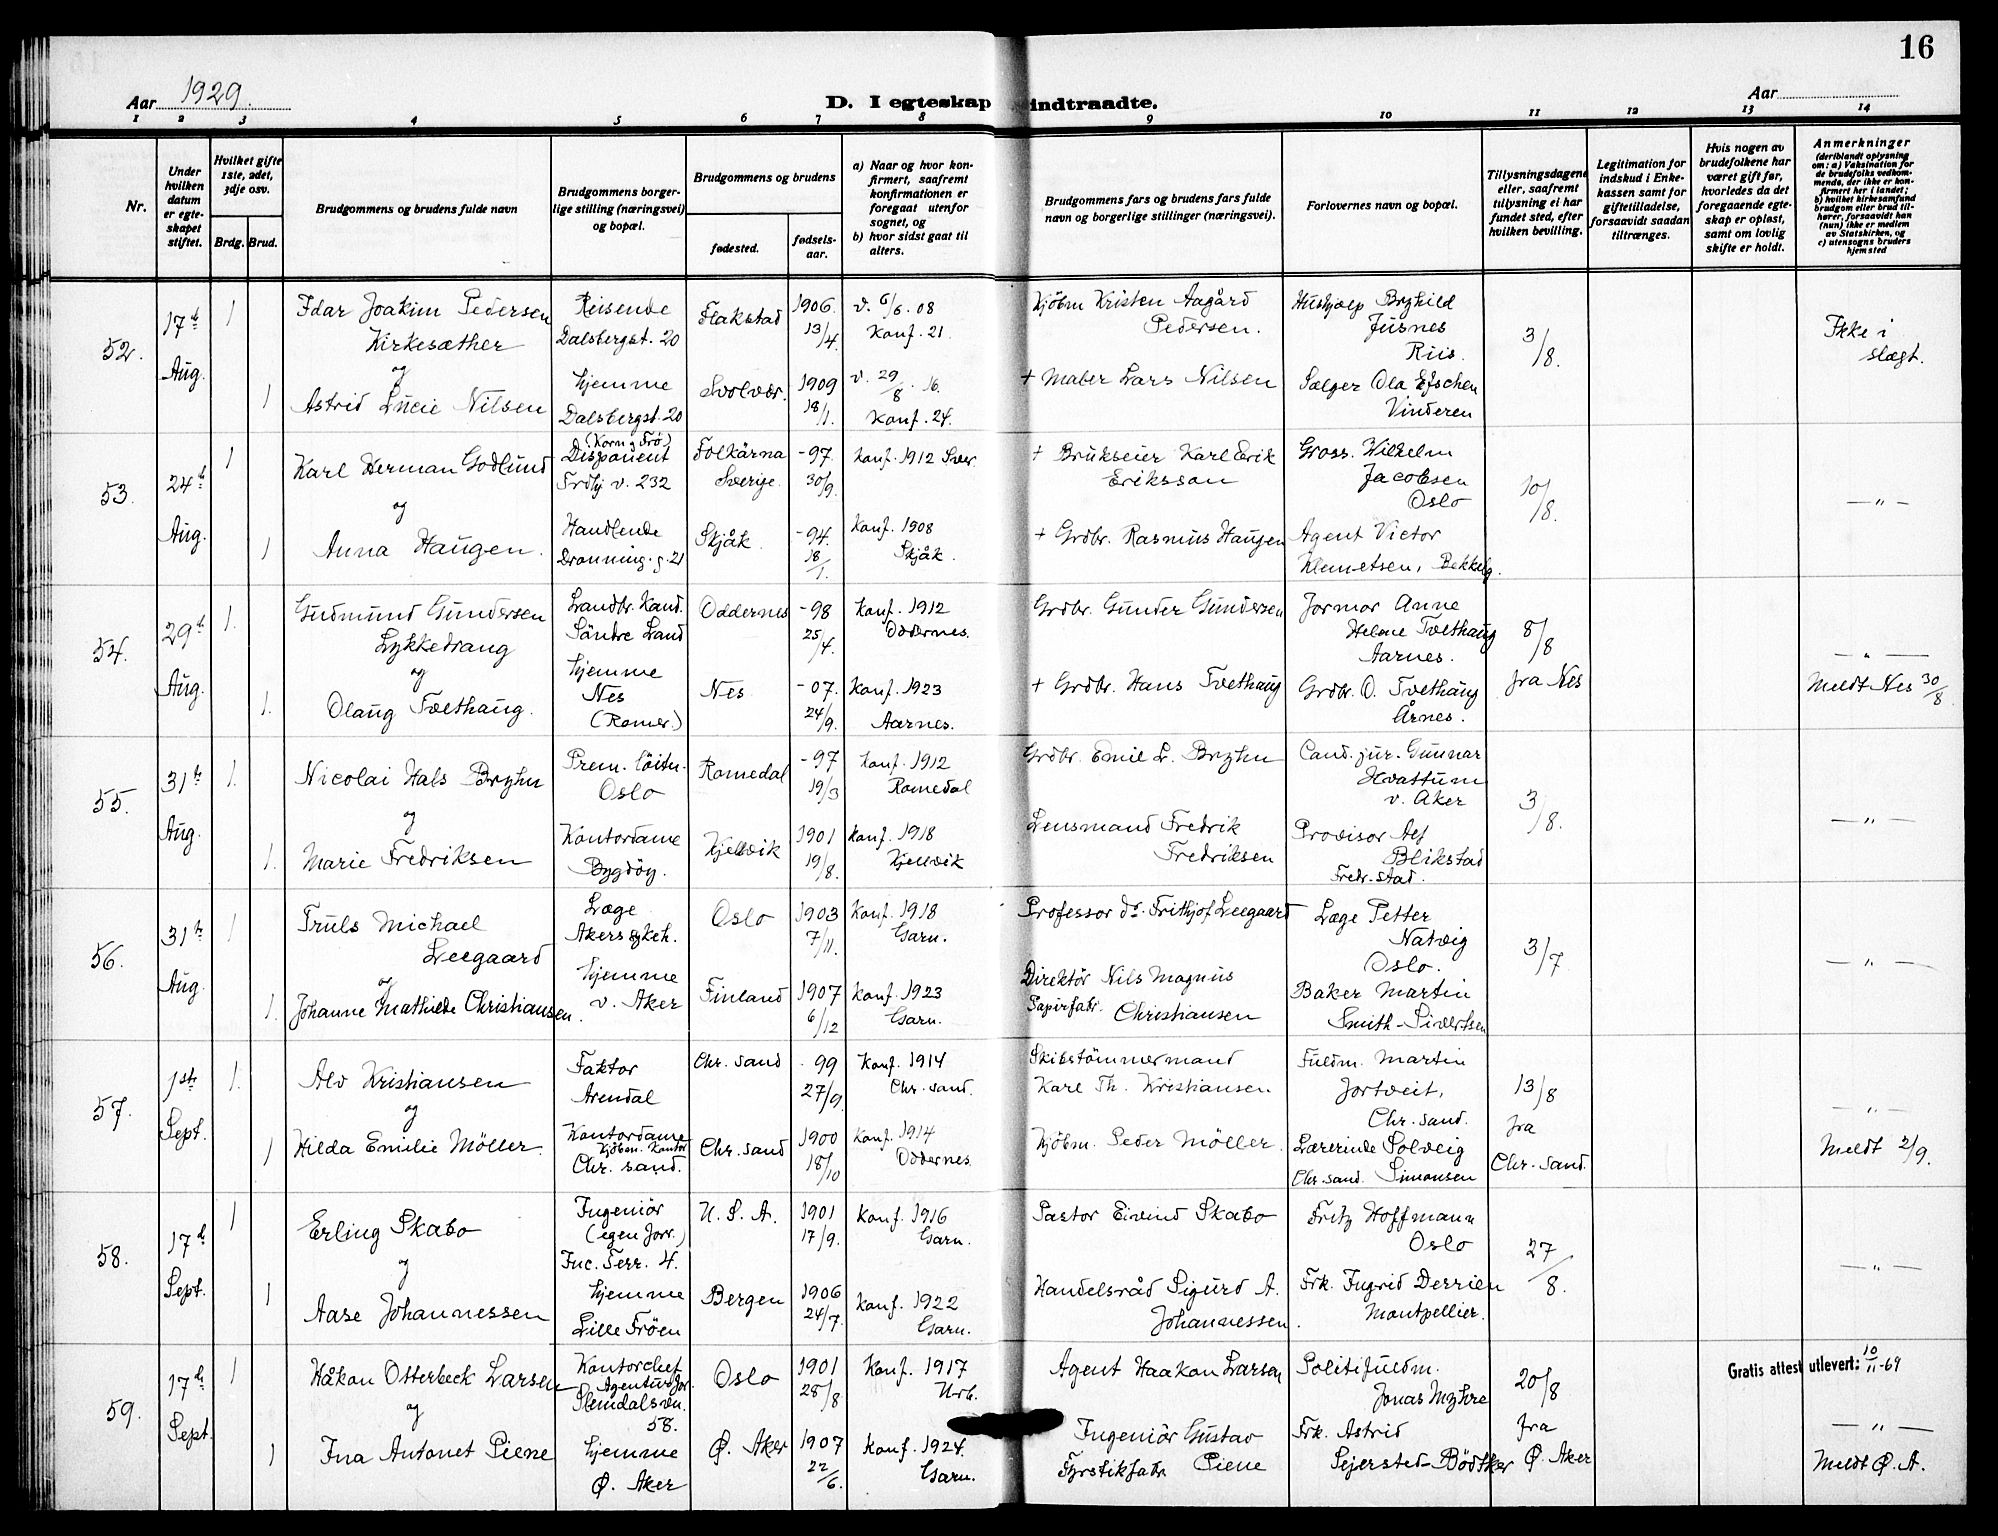 16
Aar 1929.
D. I egteskap indtraadte.
Aar
1 2 3 4 5 6 7 8 9 10 11 12 13 14
Nr.
Under hvilken datum er egteskapet stiftet.
Hvilket gifte 1ste, 2det, 3dje osv.
Brdg. Brud.
Brudgommens og brudens fulde navn
Brudgommens borgerlige stilling (næringsvei) og bopæl.
Brudgommens og brudens
fødested.
fødselsaar.
a) Naar og hvor konfirmert, saafremt konfirmationen er foregaat utenfor sognet, og
b) hvor sidst gaat til alters.
Brudgommens fars og brudens fars fulde navn og borgerlige stillinger (næringsvei).
Forlovernes navn og bopæl.
Tillysningsdagene eller, saafremt tillysning ei har fundet sted, efter hvilken bevilling.
Legitimation for indskud i Enkekassen samt for giftetilladelse, forsaavidt saadan tiltrænges.
Hvis nogen av brudefolkene har været gift før, hvorledes da det foregaaende egteskap er opløst, samt om lovlig skifte er holdt.
Anmerkninger
(deriblandt oplysning om: a) Vaksination for de brudefolks vedkommende, der ikke er konfirmert her i landet; b) hvilket kirkesamfund brudgom eller brud tilhører, forsaavidt han (hun) ikke er medlem av Statskirken, og c) utensogns bruders hjemsted
52.
17d Aug.
1
Idar Joakim Pedersen
Kirkesæther
og
1
Astrid Lucie Nilsen
Reisende
Dalsbergst. 20
hjemme
Dalsbergst. 20
Flakstad
Svolvær.
1906
13/4.
1909
18/1.
v. 6/6. 08
Konf. 21
v. 29/8. 16.
Konf. 24.
Kjöbm Kristen Aagård
Pedersen.
+ Maler Lars Nilsen
Hushjælp Brynhild
Jusnes
Riis.
Sælger Ola Efschen
Vinderen
3/8.
Ikke i
slægt.
53.
24d Aug.
1
Karl Herman Godlund
og
1
Anna Haugen.
(Korn & Frö)
Disponent
Trdhj v. 232
Handlende
Dronning. g. 21
Folkärna
Sverige.
Skjåk.
-97.
30/9.
-94.
18/1.
Konf. 1912 Sver.
Konf. 1908
Skjåk.
+ Brukseier Karl Erik
Eriksson
+ Grdbr. Rasmus Haugen
Gross. Wilhelm
Jacobsen
Oslo
Agent Victor
Klemetsen, Bekkelg.
10/8.
— " —
54.
29d Aug.
1.
Gudmund Gundersen
Lykkedrang
og
1.
Olaug Tvethaug.
Landbr. Kand.
Söndre Land
hjemme
Nes
(Romer.)
Oddernes
Nes
-98
25/4.
-07.
24/9.
Konf. 1912
Oddernes.
Konf. 1923
Aarnes.
Grdbr. Gunder Gundersen
+ Grdbr. Hans Tvethaug
Jormor Anne
Helene Tvethaug
Aarnes.
Grdbr. O. Tvethaug
Årnes.
8/8
fra Nes
— " —
Meldt Nes 30/8.
55.
31te Aug.
1.
Nicolai Hals Bryhn
og
1.
Marie Fredriksen
Prem. löitn.
Oslo
Kontordame
Bygdöy.
Romedal
Kjelvik
-97
19/3
1901
19/8.
Konf. 1912
Romedal
Konf. 1918
Kjelvik
Grdbr. Emil L. Bryhn
Lensmand Fredrik
Fredriksen
Cand. jur. Gunnar
Hvattum
v. Aker
Provisor Alf
Blikstad
Fredr.stad.
3/8.
— " —
56.
31te Aug.
1
Truls Michael
Leegaard
og
1.
Johanne Mathilde Christiansen.
Læge
Akers sykeh.
hjemme
v. Aker
Oslo
Finland
1903
7/11.
1907
6/12
Konf. 1918
Garn.
Konf. 1923
Garn.
Professor dr. Frithjof Leegaard
Direktör Nils Magnus
Papirfabr. Christiansen
Læge Petter
Natvig
Oslo.
Baker Martin
Smith-Sivertsen
3/7
— " —
57.
1ste Sept.
1.
Alv Kristiansen
og
1
Hilda Emilie Möller
Faktor
Arendal
Kontordame
Kjöbm. Kontor
Chr. sand.
Chr. sand
Chr. sand
-99
27/9.
1900
18/10
Konf. 1914
Chr. sand.
Konf. 1914
Oddernes
Skibstömmermand
Karl Th. Kristiansen
Kjöbm. Peder Möller
Fuldm. Martin
Jortveit,
Chr. sand.
Lærerinde Solveig
Chr. sand. Simonsen
13/8
fra
Chr. sand.
— " —
Meldt 2/9.
58.
17d Sept.
1
Erling Skabo
og
1
Aase Johannessen
Ingeniör
(egen forr.)
Inc. Terr. 4.
hjemme
Lille Fröen
U. S. A.
Bergen
1901
17/9.
1906
24/7.
Konf. 1916
Garn.
Konf. 1922
Garn.
Pastor Eivind Skabo
Handelsråd Sigurd A.
Johannessen.
Fritz Hoffmann
Oslo
Frk. Ingrid Derrien
Montpellier.
27/8.
— " —
59.
17d Sept.
1
Håkon Otterbeck Larsen
og
1
Ina Antonet Piene
Kontorchef
Agenturfor.
Slemdalsvn.
58.
hjemme
Ø. Aker
Oslo
Ø. Aker
1901
28/8
1907
22/6.
Konf. 1917
Urb.
Konf. 1924.
Garn.
Agent Haakon Larsen
Ingeniör Gustav
Fyrstikfabr Piene
Politifuldm.
Jonas Myhre
Frk. Astrid
Sejersted-Bödtker
20/8
fra
Ø. Aker
Gratis attest utlevert: 10/11-69
— " —
Meldt Ø. A.